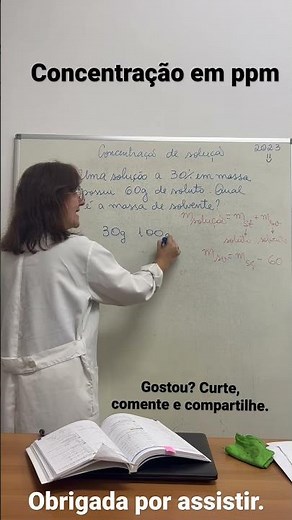 Concentração em ppm
Concentração de solução
2023
Uma solução a 30% em massa
possui 60g de soluto. Qual
é a massa de solvente?
m solução = m st + m sv
soluto solvente
30g 100g
m sv = m sç - 60
Gostou? Curte,
comente e compartilhe.
Obrigada por assistir.